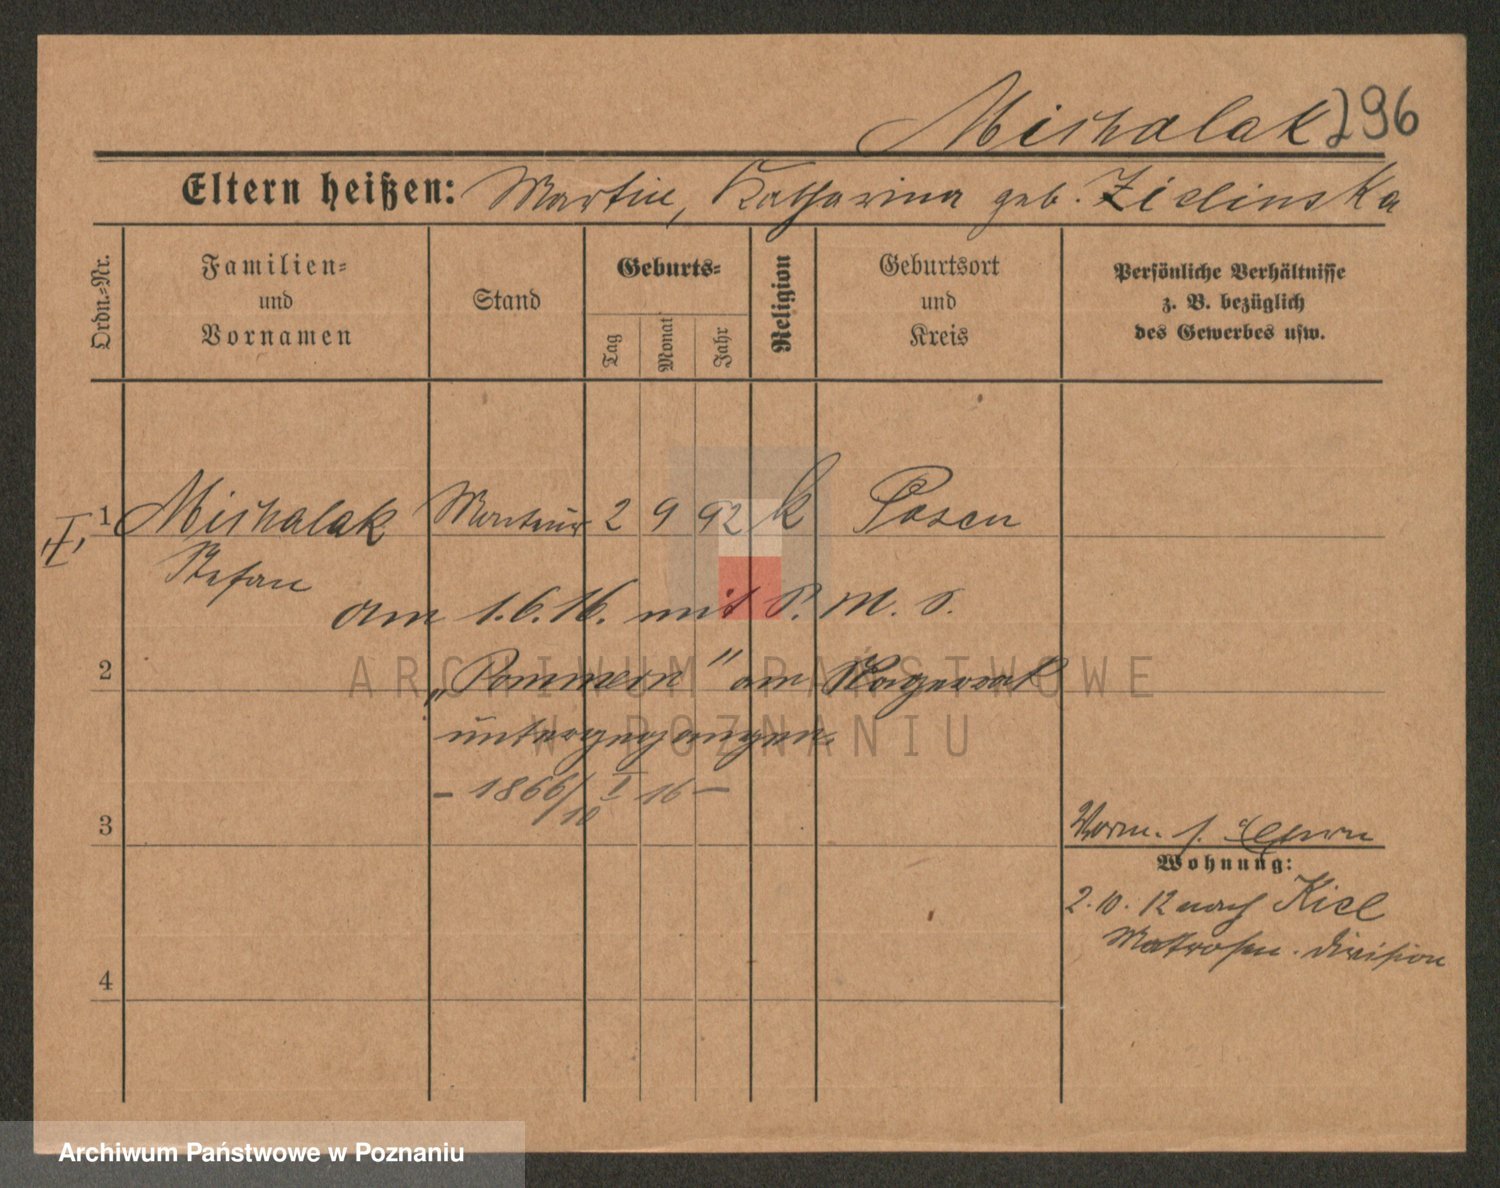 Mischalak 296
Eltern heißen: Martin, Katharina geb. Zielinska
Ordn.-Nr.
Familien- und Vornamen
Stand
Geburts-
Tag
Monat
Jahr
Religion
Geburtsort und Kreis
Persönliche Verhältnisse z. B. bezüglich des Gewerbes usw.
1 Mischalak Monteur 2 9 92 k Posen
Stefan
am 1.6.16. mit S. M. S.
2
„Pommern" am Skagerrak
untergegangen.
- 1866/10 I 16 -
3
Vorm. s.
Wohnung:
2. 10. 12 nach Kiel
Matrosen-Division
4
ARCHIWUM PAŃSTWOWE
W POZNANIU
Archiwum Państwowe w Poznaniu